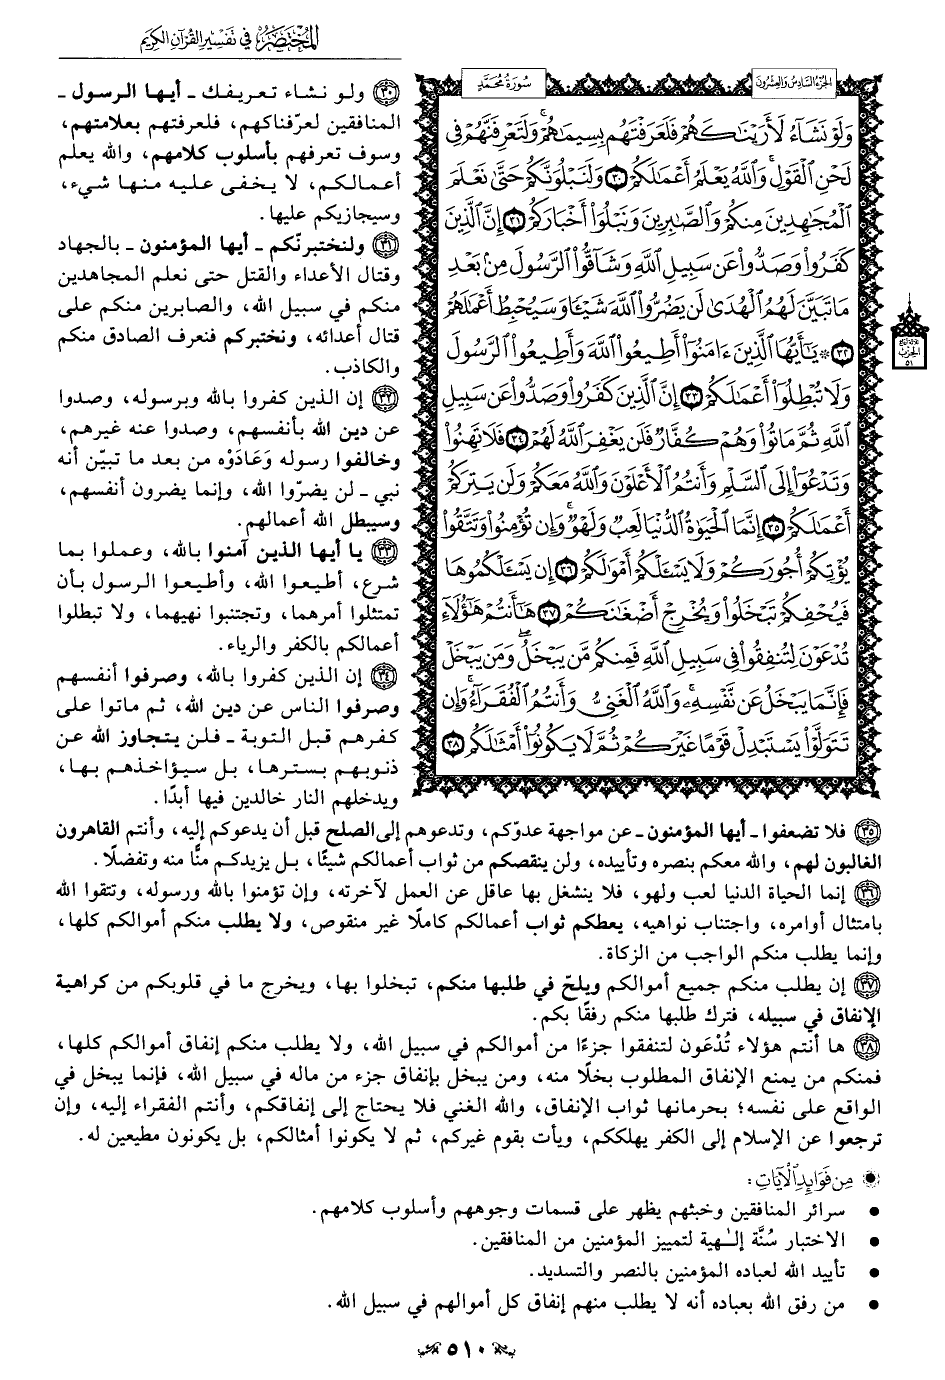 المختصر في تفسير القرآن الكريم
الجزء السادس والعشرون
سورة محمد
وَلَوْ نَشَآءُ لَأَرَيْنَٰكَهُمْ فَلَعَرَفْتَهُم بِسِيمَٰهُمْ ۚ وَلَتَعْرِفَنَّهُمْ فِى
لَحْنِ ٱلْقَوْلِ ۚ وَٱللَّهُ يَعْلَمُ أَعْمَٰلَكُمْ ٣٠ وَلَنَبْلُوَنَّكُمْ حَتَّىٰ نَعْلَمَ
ٱلْمُجَٰهِدِينَ مِنكُمْ وَٱلصَّٰبِرِينَ وَنَبْلُوَا۟ أَخْبَارَكُمْ ٣١ إِنَّ ٱلَّذِينَ
كَفَرُوا۟ وَصَدُّوا۟ عَن سَبِيلِ ٱللَّهِ وَشَآقُّوا۟ ٱلرَّسُولَ مِنۢ بَعْدِ
مَا تَبَيَّنَ لَهُمُ ٱلْهُدَىٰ لَن يَضُرُّوا۟ ٱللَّهَ شَيْـًٔا وَسَيُحْبِطُ أَعْمَٰلَهُمْ
٣٢ ۞ يَٰٓأَيُّهَا ٱلَّذِينَ ءَامَنُوٓا۟ أَطِيعُوا۟ ٱللَّهَ وَأَطِيعُوا۟ ٱلرَّسُولَ
وَلَا تُبْطِلُوٓا۟ أَعْمَٰلَكُمْ ٣٣ إِنَّ ٱلَّذِينَ كَفَرُوا۟ وَصَدُّوا۟ عَن سَبِيلِ
ٱللَّهِ ثُمَّ مَاتُوا۟ وَهُمْ كُفَّارٌ فَلَن يَغْفِرَ ٱللَّهُ لَهُمْ ٣٤ فَلَا تَهِنُوا۟
وَتَدْعُوٓا۟ إِلَى ٱلسَّلْمِ وَأَنتُمُ ٱلْأَعْلَوْنَ وَٱللَّهُ مَعَكُمْ وَلَن يَتِرَكُمْ
أَعْمَٰلَكُمْ ٣٥ إِنَّمَا ٱلْحَيَوٰةُ ٱلدُّنْيَا لَعِبٌ وَلَهْوٌ ۚ وَإِن تُؤْمِنُوا۟ وَتَتَّقُوا۟
يُؤْتِكُمْ أُجُورَكُمْ وَلَا يَسْـَٔلْكُمْ أَمْوَٰلَكُمْ ٣٦ إِن يَسْـَٔلْكُمُوهَا
فَيُحْفِكُمْ تَبْخَلُوا۟ وَيُخْرِجْ أَضْغَٰنَكُمْ ٣٧ هَٰٓأَنتُمْ هَٰٓؤُلَآءِ
تُدْعَوْنَ لِتُنفِقُوا۟ فِى سَبِيلِ ٱللَّهِ فَمِنكُم مَّن يَبْخَلُ ۖ وَمَن يَبْخَلْ
فَإِنَّمَا يَبْخَلُ عَن نَّفْسِهِۦ ۚ وَٱللَّهُ ٱلْغَنِىُّ وَأَنتُمُ ٱلْفُقَرَآءُ ۚ وَإِن
تَتَوَلَّوْا۟ يَسْتَبْدِلْ قَوْمًا غَيْرَكُمْ ثُمَّ لَا يَكُونُوٓا۟ أَمْثَٰلَكُم ٣٨
الحزب
٥١
٣٠ ولو نشاء تعريفك - أيها الرسول -
المنافقين لعرّفناكهم، فلعرفتهم بعلامتهم،
وسوف تعرفهم بأسلوب كلامهم، والله يعلم
أعمالكم، لا يخفى عليه منها شيء،
وسيجازيكم عليها.
٣١ ولنختبرنّكم - أيها المؤمنون - بالجهاد
وقتال الأعداء والقتل حتى نعلم المجاهدين
منكم في سبيل الله، والصابرين منكم على
قتال أعدائه، ونختبركم فنعرف الصادق منكم
والكاذب.
٣٢ إن الذين كفروا بالله وبرسوله، وصدوا
عن دين الله بأنفسهم، وصدوا عنه غيرهم،
وخالفوا رسوله وَعَادَوْه من بعد ما تبيّن أنه
نبي - لن يضرّوا الله، وإنما يضرون أنفسهم،
وسيبطل الله أعمالهم.
٣٣ يا أيها الذين آمنوا بالله، وعملوا بما
شرع، أطيعوا الله، وأطيعوا الرسول بأن
تمتثلوا أمرهما، وتجتنبوا نهيهما، ولا تبطلوا
أعمالكم بالكفر والرياء.
٣٤ إن الذين كفروا بالله، وصرفوا أنفسهم
وصرفوا الناس عن دين الله، ثم ماتوا على
كفرهم قبل التوبة - فلن يتجاوز الله عن
ذنوبهم بسترها، بل سيؤاخذهم بها،
ويدخلهم النار خالدين فيها أبدًا.
٣٥ فلا تضعفوا - أيها المؤمنون - عن مواجهة عدوّكم، وتدعوهم إلى الصلح قبل أن يدعوكم إليه، وأنتم القاهرون
الغالبون لهم، والله معكم بنصره وتأييده، ولن ينقصكم من ثواب أعمالكم شيئًا، بل يزيدكم منًّا منه وتفضلًا.
٣٦ إنما الحياة الدنيا لعب ولهو، فلا ينشغل بها عاقل عن العمل لآخرته، وإن تؤمنوا بالله ورسوله، وتتقوا الله
بامتثال أوامره، واجتناب نواهيه، يعطكم ثواب أعمالكم كاملًا غير منقوص، ولا يطلب منكم أموالكم كلها،
وإنما يطلب منكم الواجب من الزكاة.
٣٧ إن يطلب منكم جميع أموالكم ويلحّ في طلبها منكم، تبخلوا بها، ويخرج ما في قلوبكم من كراهية
الإنفاق في سبيله، فترك طلبها منكم رفقًا بكم.
٣٨ ها أنتم هؤلاء تُدْعَون لتنفقوا جزءًا من أموالكم في سبيل الله، ولا يطلب منكم إنفاق أموالكم كلها،
فمنكم من يمنع الإنفاق المطلوب بخلًا منه، ومن يبخل بإنفاق جزء من ماله في سبيل الله، فإنما يبخل في
الواقع على نفسه؛ بحرمانها ثواب الإنفاق، والله الغني فلا يحتاج إلى إنفاقكم، وأنتم الفقراء إليه، وإن
ترجعوا عن الإسلام إلى الكفر يهلككم، ويأت بقوم غيركم، ثم لا يكونوا أمثالكم، بل يكونون مطيعين له.
من فوائد الآيات:
• سرائر المنافقين وخبثهم يظهر على قسمات وجوههم وأسلوب كلامهم.
• الاختبار سُنَّة إلهية لتمييز المؤمنين من المنافقين.
• تأييد الله لعباده المؤمنين بالنصر والتسديد.
• من رفق الله بعباده أنه لا يطلب منهم إنفاق كل أموالهم في سبيل الله.
٥١٠